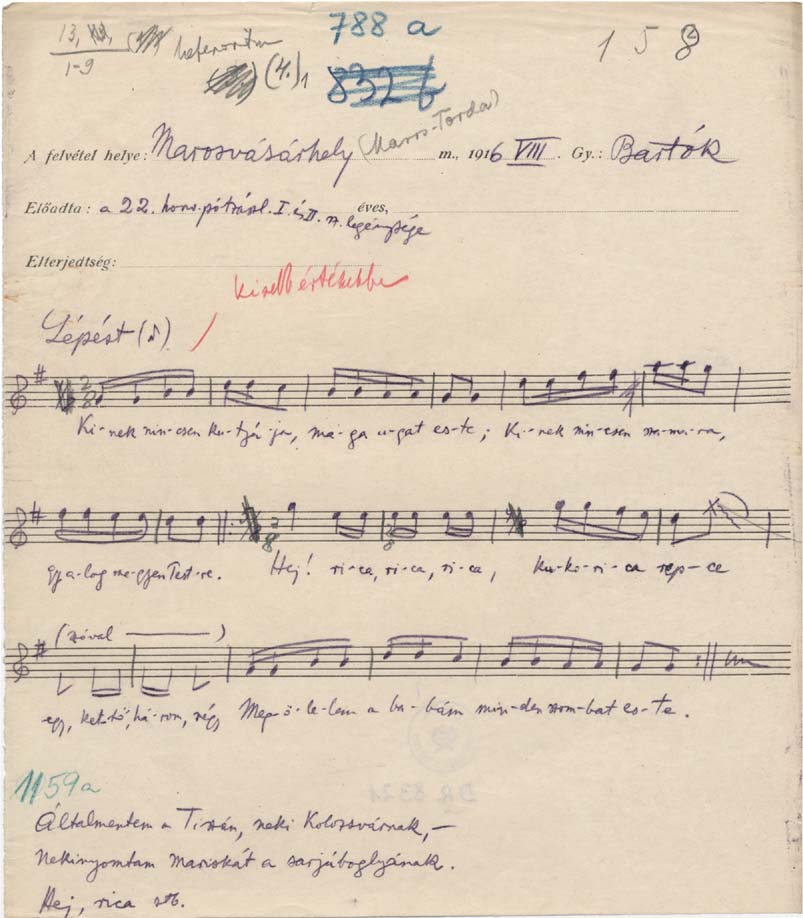 13,
1-9
(4.)1
788 a
832 b
158
A felvétel helye: Marosvásárhely (Maros-Torda) m., 1916 VIII. Gy.: Bartók
Előadta: a 22. honv. pótzászl. I és II. sz. legénysége éves,
Elterjedtség:
Lépést
2/8
Ki-nek nin-csen ku-tyá-ja, ma-ga u-gat es-te; Ki-nek nin-csen
2/8 2/8
gya-log me-gyen Test-re. Hej! ri-ca, ri-ca, ri-ca, ku-ko-ri-ca rep-ce
(szóval)
egy, ket-tő, há-rom, négy Meg-ö-le-lem a ba-bám min-den szom-bat es-te.
1159a
Általmentem a Tiszán, neki Kolozsvárnak,-
Nekinyomtam mariskát a sarjúboglyának.
Hej, rica stb.